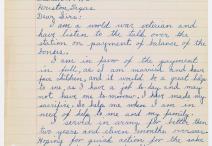 Houston, Texas
Dear Sirs:
I am a world war veteran and
have listen to the talk over the
station on payment of balance of the
bonuses.
I am in favor of the payment
in full, as I am married and have
five children, and it would be a great help
to me as I have a job to-day and may
not have me to-morrow. I has made my
sacrifice. So help me when I am in
need of help to me and my family.
I service in army for better then
two years and eleven months oversea.
Hoping for quick action for the sake